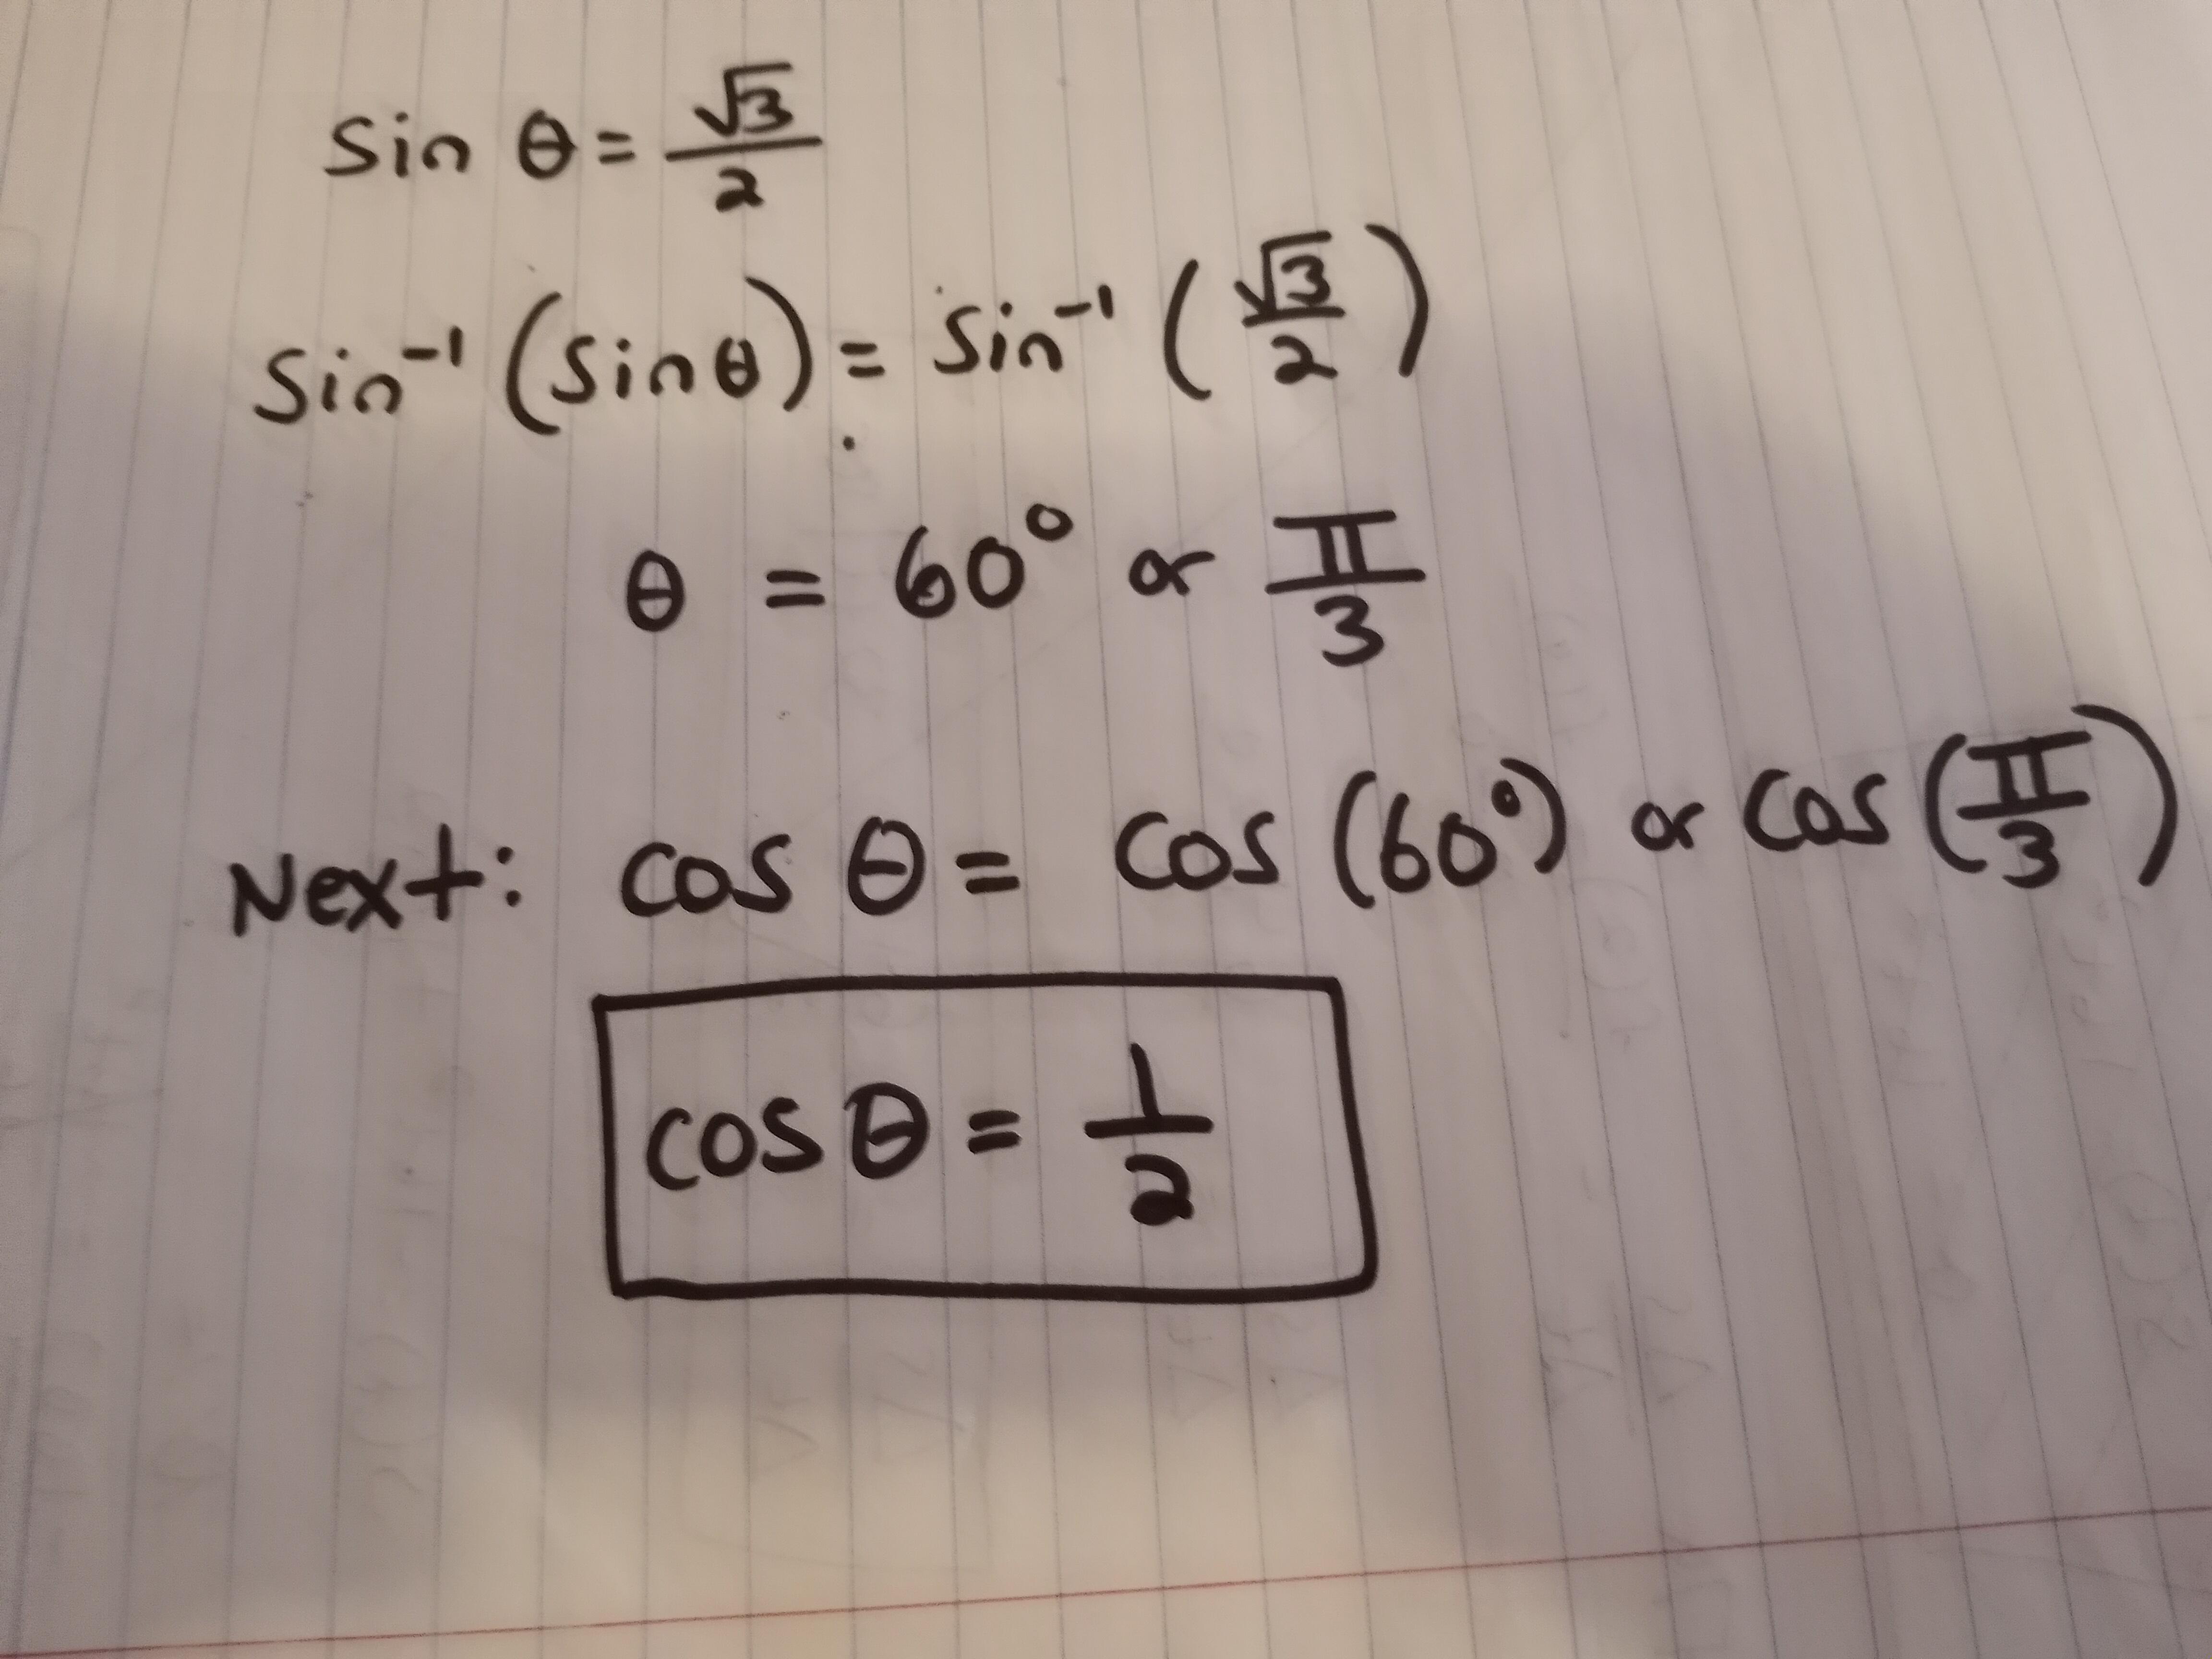 sin θ = √3/2
sin⁻¹ (sin θ) = sin⁻¹ (√3/2)
θ = 60° or π/3
Next: cos θ = cos (60°) or cos (π/3)
cos θ = 1/2